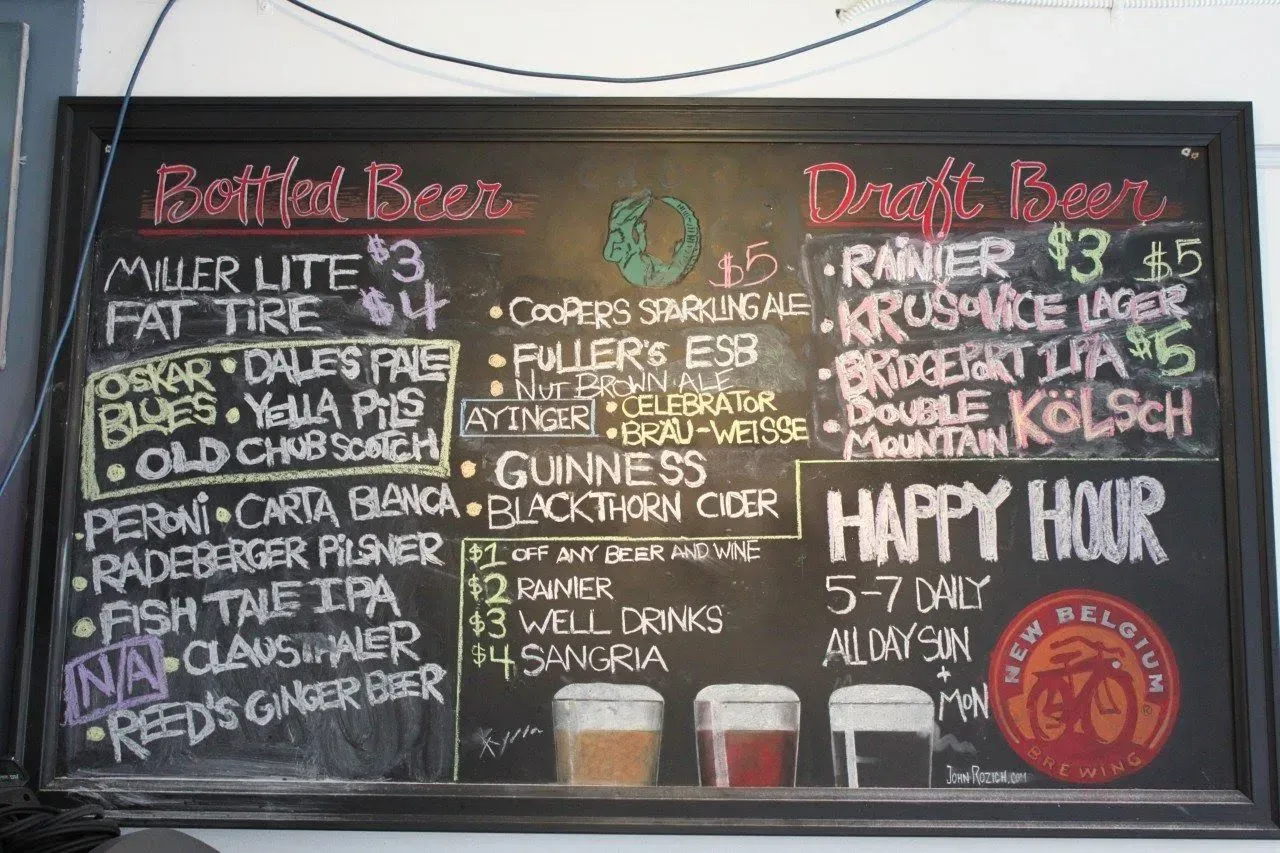 Bottled Beer
MILLER LITE $3
FAT TIRE $4
OSKAR BLUES
• DALE'S PALE
• YELLA PILS
• OLD CHUB SCOTCH
• PERONI • CARTA BLANCA
• RADEBERGER PILSNER
• FISH TALE IPA
N/A • CLAUSTHALER
• REED'S GINGER BEER
$5
• COOPERS SPARKLING ALE
• FULLER'S ESB
• NUT BROWN ALE
AYINGER
• CELEBRATOR
• BRÄU-WEISSE
• GUINNESS
• BLACKTHORN CIDER
Draft Beer
• RAINIER $3 $5
• KRUŠOVICE LAGER
• BRIDGEPORT IPA $5
• DOUBLE MOUNTAIN KÖLSCH
HAPPY HOUR
5-7 DAILY
ALL DAY SUN
+
MON
$1 OFF ANY BEER AND WINE
$2 RAINIER
$3 WELL DRINKS
$4 SANGRIA
NEW BELGIUM
BREWING
®
JOHNROZICH.COM